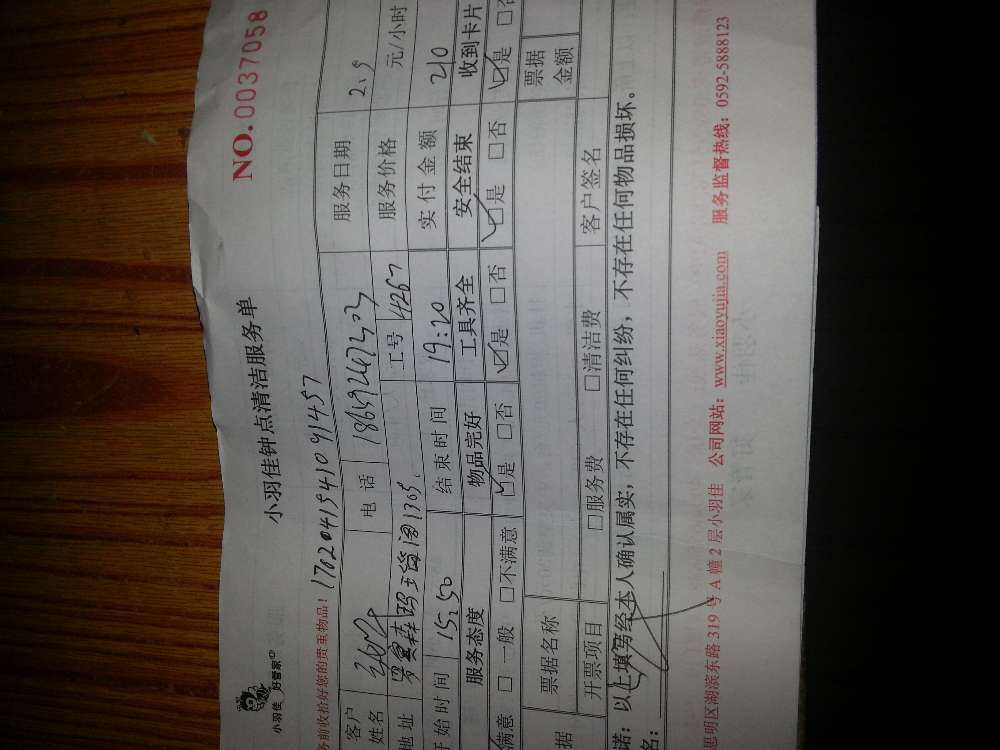 小羽佳
好管家
小羽佳钟点清洁服务单
NO.0037058
务前收拾好您的贵重物品！ 17020415410 91457
客户姓名 电话 18692467303 服务日期 2.9
地址 玛瑙阁1305. 工号 4267 服务价格 元/小时
开始时间 15:50 结束时间 19:20 实付金额 210
服务态度 物品完好 工具齐全 安全结束 收到卡片
满意 □一般 □不满意 □是 □否 □是 □否 □是 □否 □是 □否
据 票据名称 票据金额
开票项目 □服务费 □清洁费 客户签名
诺：以上填写经本人确认属实，不存在任何纠纷，不存在任何物品损坏。
名：
思明区湖滨东路319号A幢2层小羽佳 公司网站：www.xiaoyujia.com 服务监督热线：0592-5888123